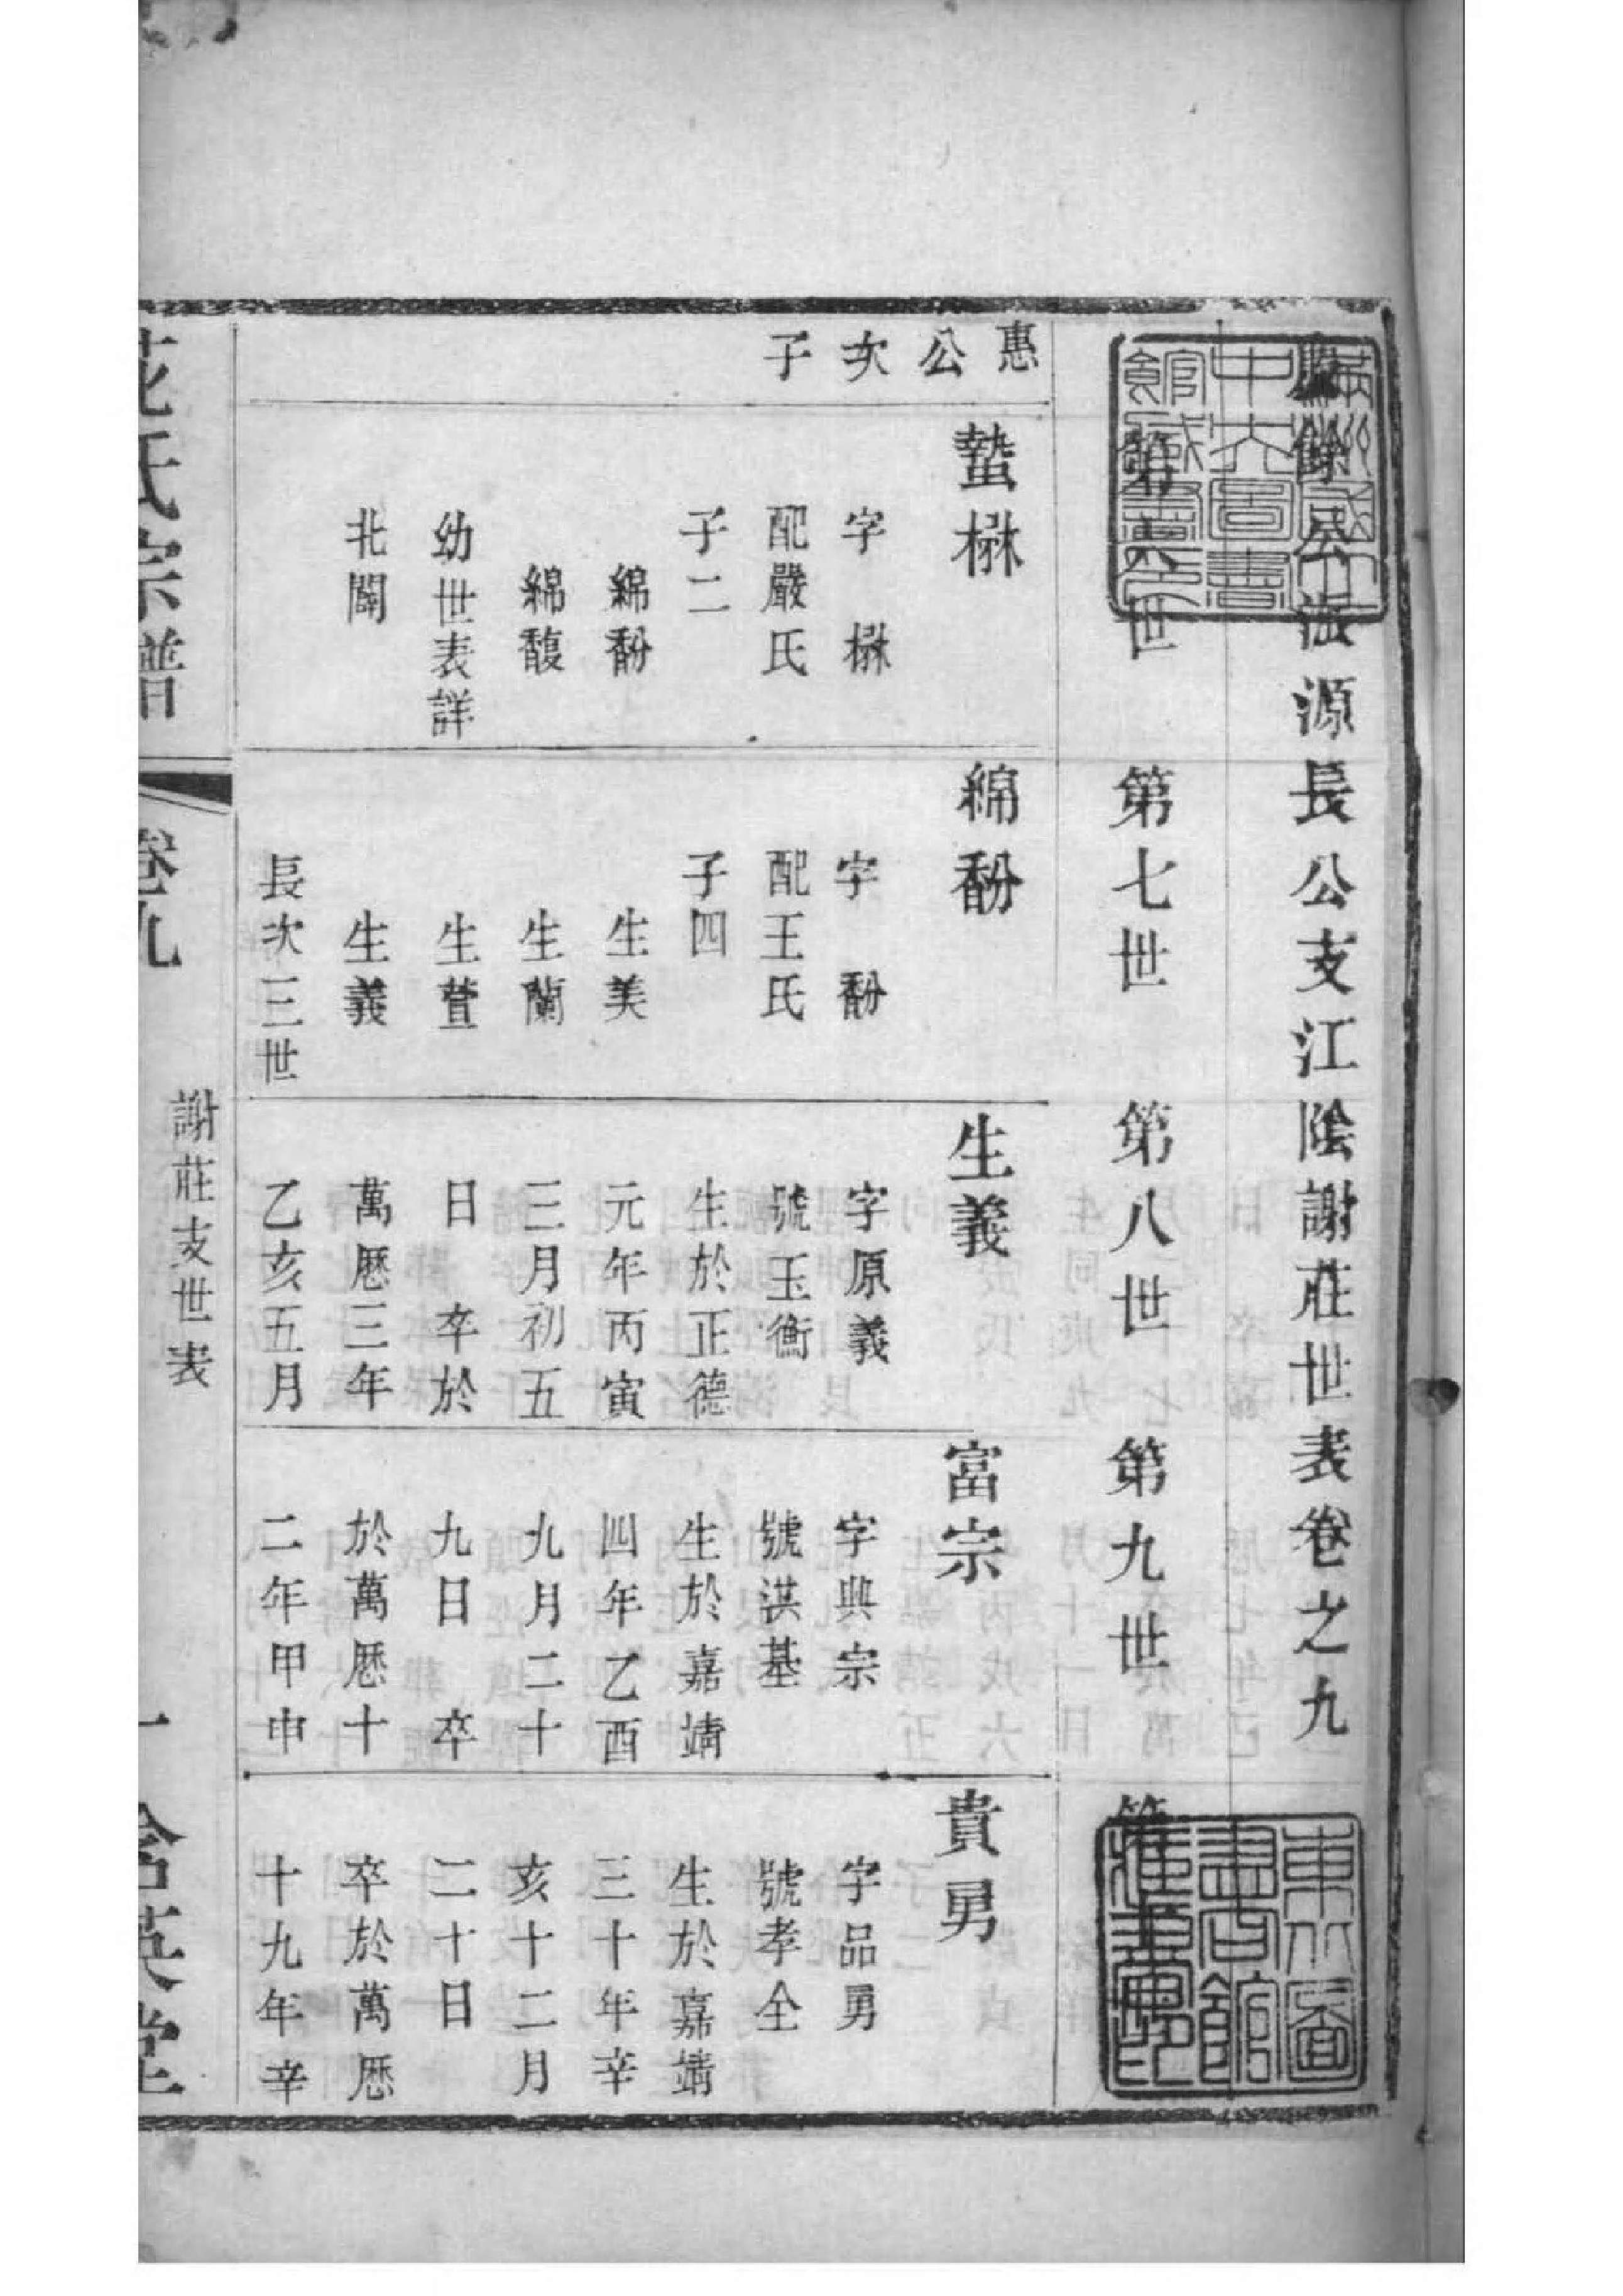 餘公派源長公支江陰謝莊世表卷之九
第六世
第七世
第八世
第九世
第
惠公次子
蟄楙
字楙
配嚴氏
子二
綿馚
綿馥
幼世表詳
北闈
綿馚
字馚
配王氏
子四
生美
生蘭
生萱
生義
長次三世
生義
字原義
號玉衡
生於正德
元年丙寅
三月初五
日 卒於
萬厯三年
乙亥五月
富宗
字興宗
號洪基
生於嘉靖
四年乙酉
九月二十
九日 卒
於萬厯十
二年甲申
貴勇
字品勇
號孝全
生於嘉靖
三十年辛
亥十二月
二十日
卒於萬厯
十九年辛
氏宗譜
卷九
謝莊支世表
一